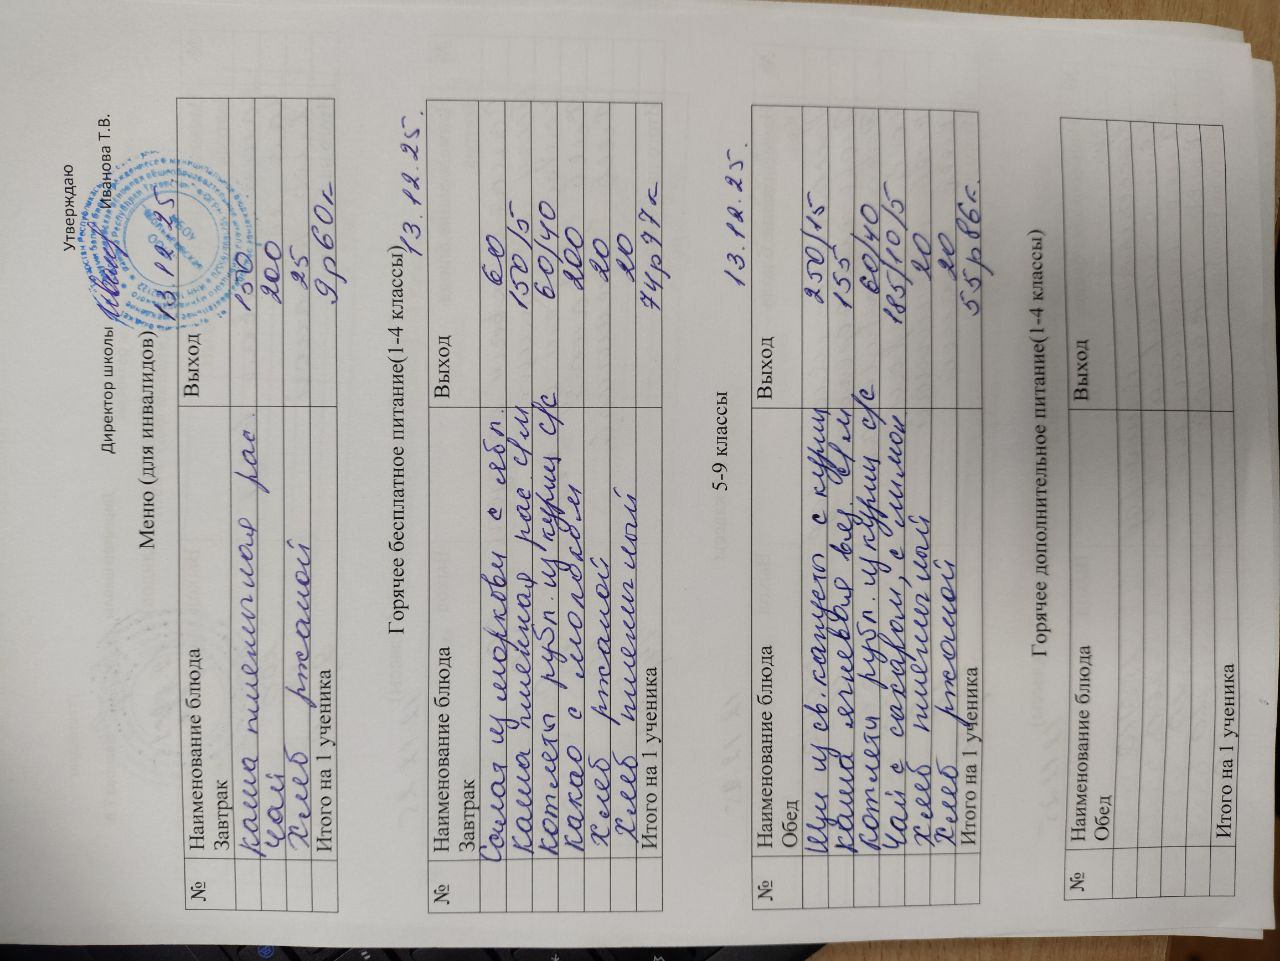 Утверждаю
Директор школы Иванова Т.В.
Меню (для инвалидов) 13 12 25
№ Наименование блюда Выход
Завтрак
каша пшеничная рас. 150
чай 200
Хлеб ржаной 25
Итого на 1 ученика 9р60к
Горячее бесплатное питание(1-4 классы) 13.12.25.
№ Наименование блюда Выход
Завтрак
Салат из моркови с ябл. 60
каша пшенная рас с/м 150/5
котлеты рубл. из куриц с/с 60/40
какао с молоком 200
Хлеб ржаной 20
Хлеб пшеничный 20
Итого на 1 ученика 74р97к
5-9 классы 13.12.25.
№ Наименование блюда Выход
Обед
Щи из св.капусты с куриц 250/15
каша ячневая вяз. с/м 155
котлеты рубл. из куриц с/с 60/40
Чай с сахаром, с лимон 185/10/5
Хлеб пшеничный 20
Хлеб ржаной 20
Итого на 1 ученика 55р86к.
Горячее дополнительное питание(1-4 классы)
№ Наименование блюда Выход
Обед
Итого на 1 ученика